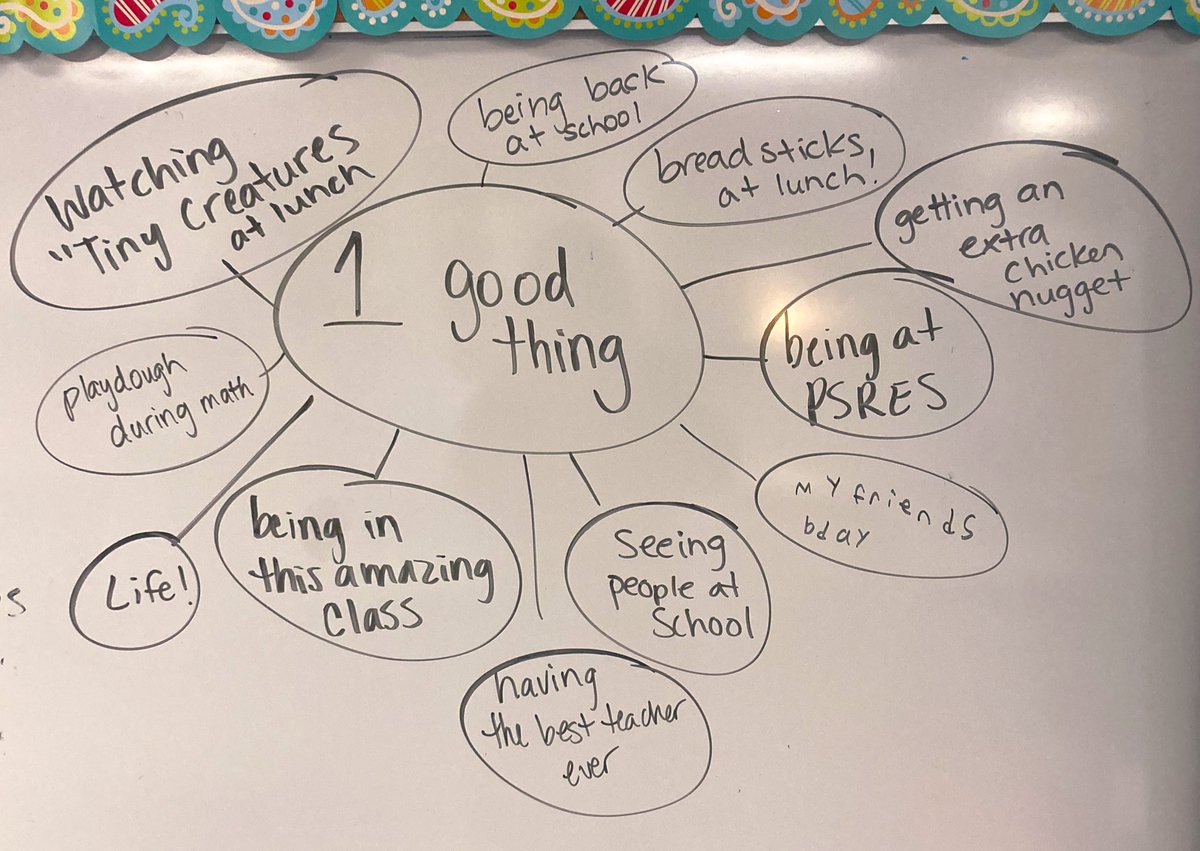 being back
at school
Watching
"Tiny Creatures
at lunch
bread sticks,
at lunch!
getting an
extra
chicken
nugget
1 good
thing
being at
PSRES
playdough
during math
my friends
bday
Life!
being in
this amazing
class
Seeing
people at
School
having
the best teacher
ever